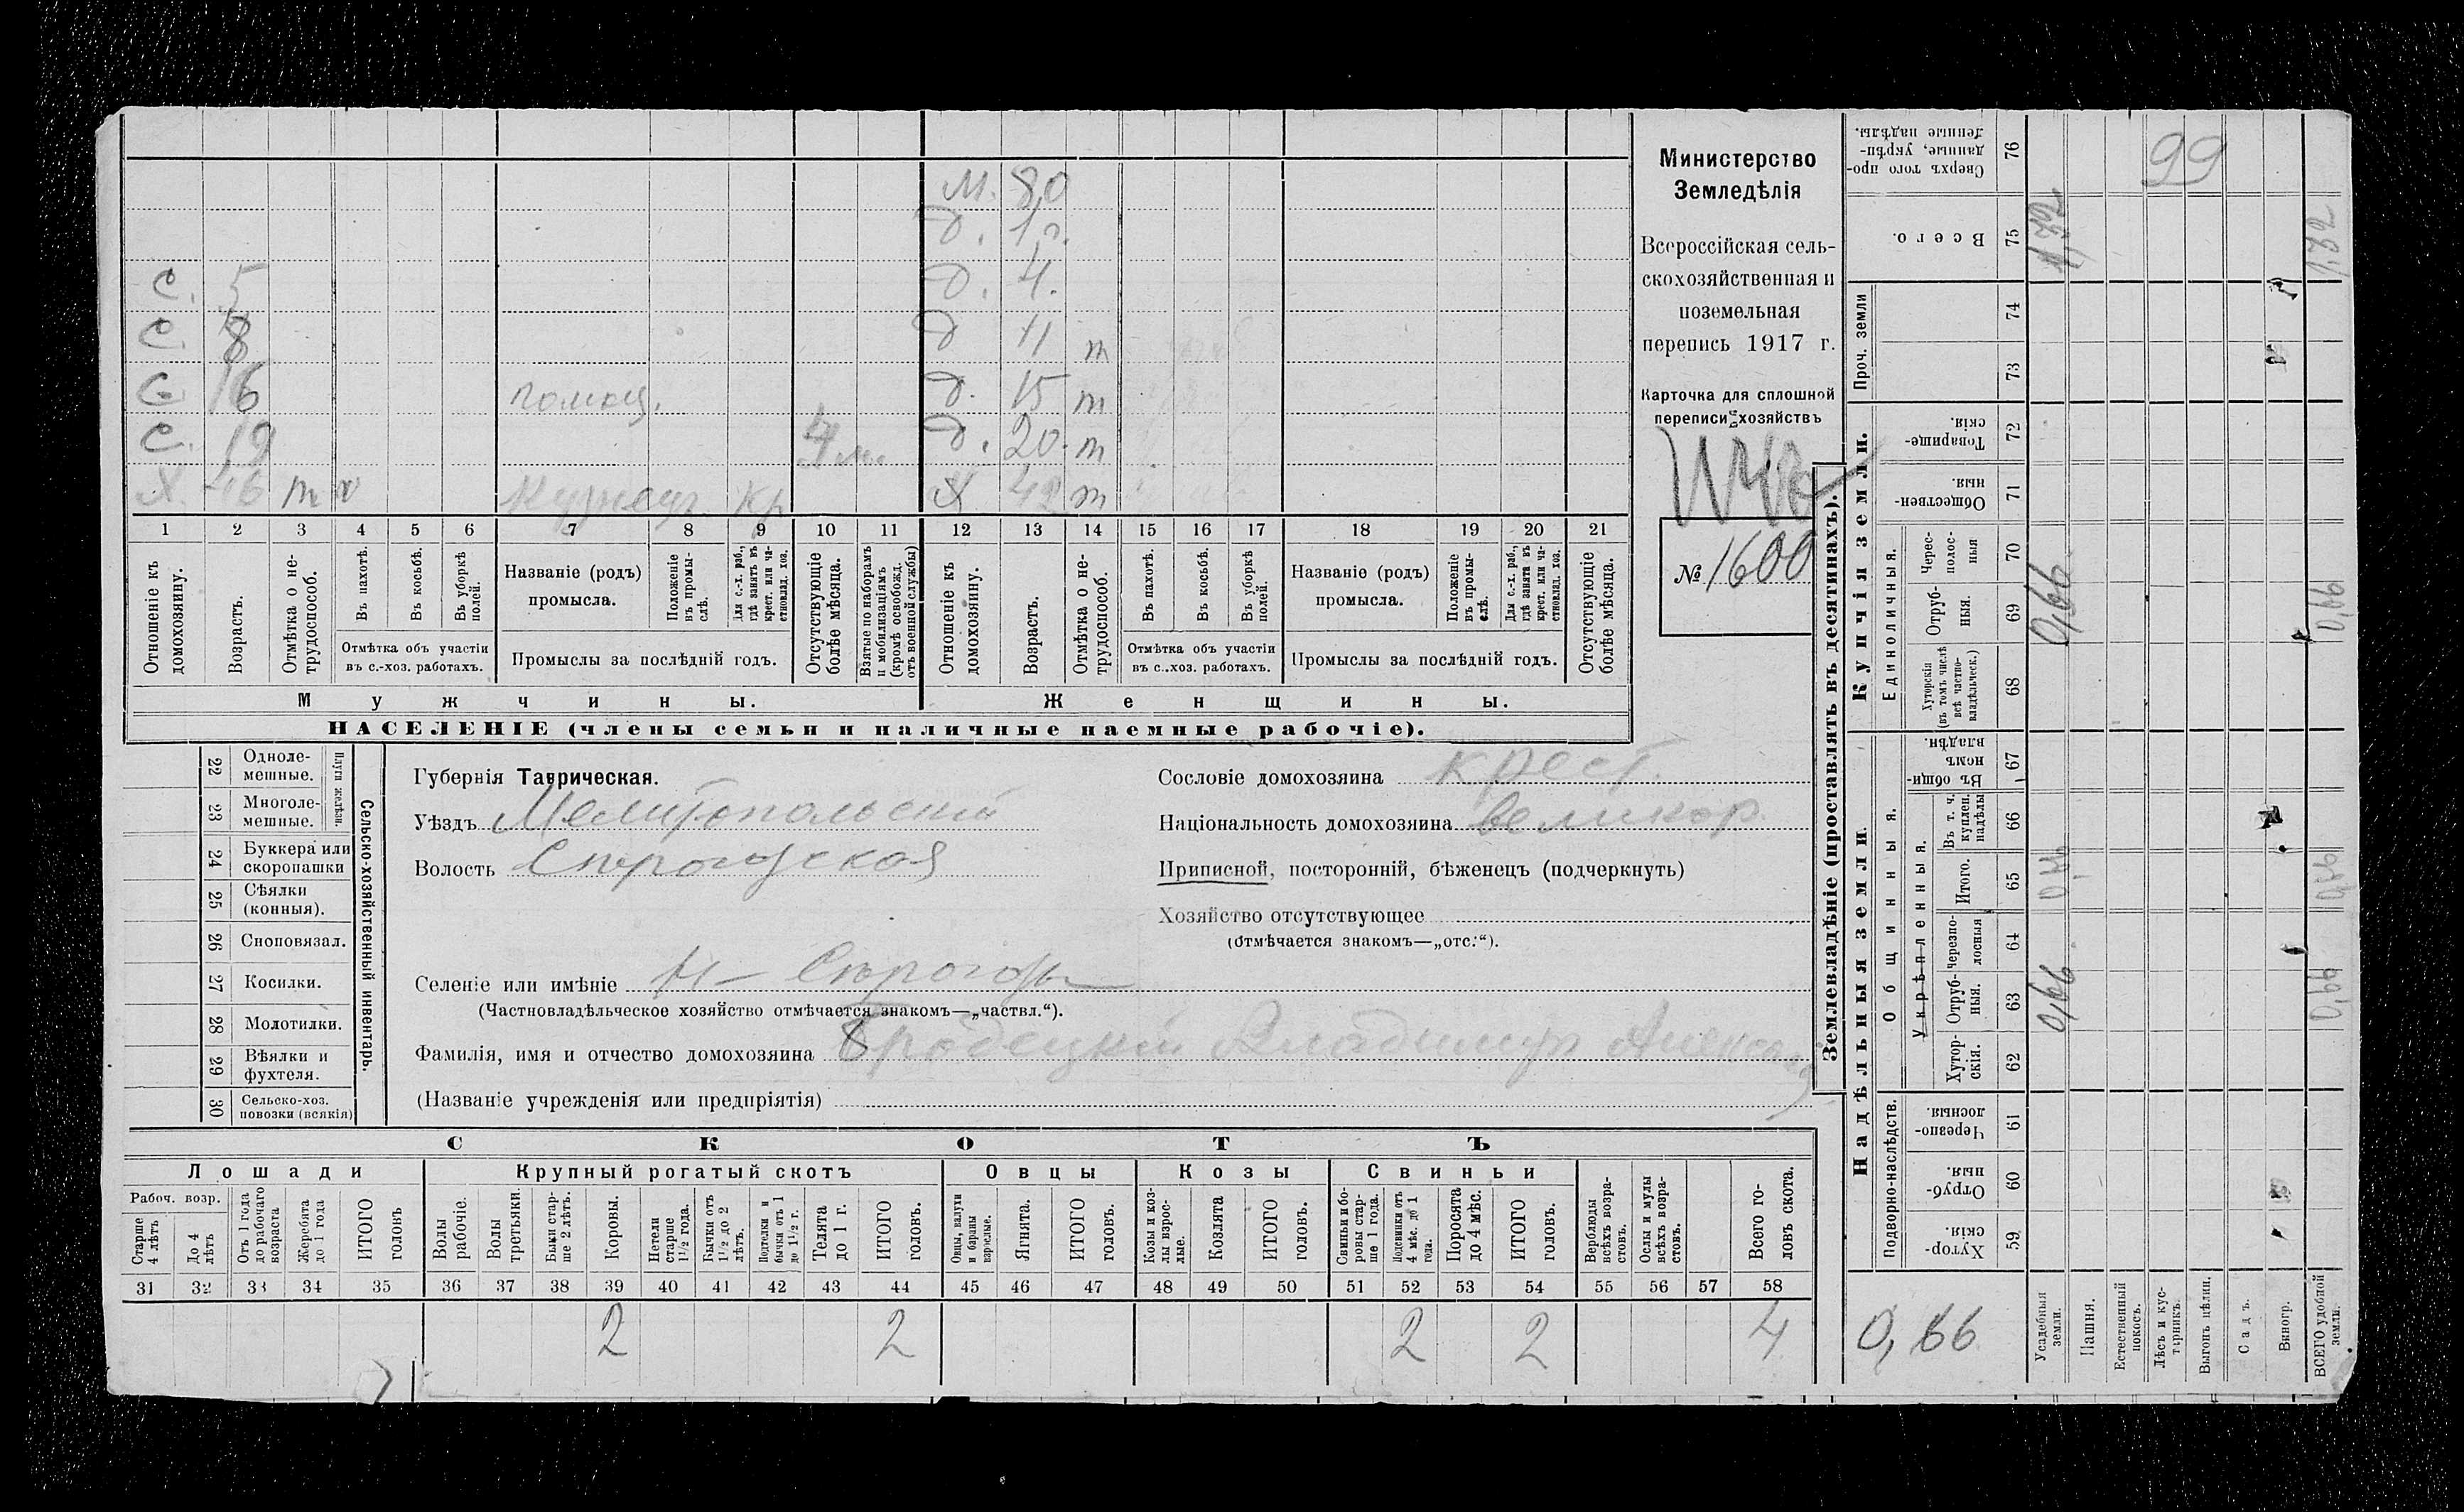 М. 80
д. 1 г.
С. 5 д. 4.
С. 8 д 11 т
С 16 помощ. д. 15 т
С. 19 4 м. д. 20. т
Х. 46 т Кузнецъ. Кр Х 42 т
1 2 3 4 5 6 7 8 9 10 11 12 13 14 15 16 17 18 19 20 21
Отношеніе къ домохозяину.
Возрастъ.
Отмѣтка о не-
трудоспособ.
Въ пахотѣ.
Въ косьбѣ.
Въ уборкѣ
полей.
Отмѣтка объ участіи
въ с.-хоз. работахъ.
Названіе (родъ)
промысла.
Положеніе
въ промы-
слѣ.
Для с.-х. раб.,
гдѣ занятъ въ
крест. или ча-
стновлад. хоз.
Промыслы за послѣдній годъ.
Отсутствующіе
болѣе мѣсяца.
Взятые по наборамъ
и мобилизаціямъ
(кромѣ освобожд.
отъ военной службы)
Отношеніе къ
домохозяину.
Возрастъ.
Отмѣтка о не-
трудоспособ.
Въ пахотѣ.
Въ косьбѣ.
Въ уборкѣ
полей.
Отмѣтка объ участіи
въ с.-хоз. работахъ.
Названіе (родъ)
промысла.
Положеніе
въ промы-
слѣ.
Для с.-х. раб.,
гдѣ занята въ
крест. или ча-
стновлад. хоз.
Промыслы за послѣдній годъ.
Отсутствующіе
болѣе мѣсяца.
Мужчины.
Женщины.
НАСЕЛЕНІЕ (члены семьи и наличные наемные рабочіе).
Министерство
Земледѣлія
Всероссійская сель-
скохозяйственная и
поземельная
перепись 1917 г.
Карточка для сплошной
переписи хозяйствъ
№ 1600
22 Одноле-
мешные.
23 Многоле-
мешные.
Плуги желѣзн.
24 Буккера или
скоропашки
25 Сѣялки
(конныя).
26 Сноповязал.
27 Косилки.
28 Молотилки.
29 Вѣялки и
фухтеля.
30 Сельско-хоз.
повозки (всякія)
Сельско-хозяйственный инвентарь.
Губернія Таврическая.
Уѣздъ Мелитопольскій
Волость Сѣрогозская
Селеніе или имѣніе Н- Сѣрогозы
(Частновладѣльческое хозяйство отмѣчается знакомъ—„частвл.“).
Фамилія, имя и отчество домохозяина Бродецкій Владимиръ Александ
(Названіе учрежденія или предпріятія)
Сословіе домохозяина крест.
Національность домохозяина великор.
Приписной, посторонній, бѣженецъ (подчеркнуть)
Хозяйство отсутствующее
(Отмѣчается знакомъ—„отс.“).
СКОТЪ
Лошади Крупный рогатый скотъ Овцы Козы Свиньи
Рабоч. возр.
Старше
4 лѣтъ
До 4
лѣтъ
Отъ 1 года
до рабочаго
возраста
Жеребята
до 1 года
ИТОГО
головъ
Волы
рабочіе.
Волы
третьяки.
Быки стар-
ше 2 лѣтъ.
Коровы.
Нетели
старше
1½ года.
Бычки отъ
1½ до 2
лѣтъ.
Подтелки и
бычки отъ 1
до 1½ г.
Телята
до 1 г.
ИТОГО
головъ.
Овцы, валухи
и бараны
взрослые.
Ягнята.
ИТОГО
головъ.
Козы и коз-
лы взрос-
лые.
Козлята
ИТОГО
головъ.
Свиньи и бо-
ровы стар-
ше 1 года.
Подсвинки отъ
4 мѣс. до 1
года.
Поросята
до 4 мѣс.
ИТОГО
головъ.
Верблюды
всѣхъ возра-
стовъ.
Ослы и мулы
всѣхъ возра-
стовъ.
Всего го-
ловъ скота.
31 32 33 34 35 36 37 38 39 40 41 42 43 44 45 46 47 48 49 50 51 52 53 54 55 56 57 58
2 2 2 2 4
Землевладѣніе (проставлять въ десятинахъ).
Надѣльныя земли.
Купчія земли.
Проч. земли
Сверхъ того про-
данные, укрѣп-
ленные надѣлы.
76
99
Всего.
75
1,32
1,32
74
73
Товарище-
скія.
72
Обществен-
ныя.
71
Единоличныя.
Черес-
полос-
ныя
70
Отруб-
ныя.
69
0,66
0,66
Хуторскія
(въ томъ числѣ
всѣ частно-
владѣльческ.)
68
Общинныя.
Въ общин-
номъ
владѣн.
67
Укрѣпленныя.
Въ т. ч.
куплен.
надѣлы
66
Итого.
65
Черезпо-
лосныя
64
Отруб-
ныя.
63
0,66
0,66
Хутор-
скія.
62
Подворно-наслѣдств.
Черезпо-
лосныя.
61
Отруб-
ныя.
60
Хутор-
скія.
59
0,66
Усадебныя
земли.
Пашня.
Естественный
покосъ.
Лѣсъ и кус-
тарникъ.
Выгонъ цѣлин.
Садъ.
Виногр.
ВСЕГО удобной
земли.